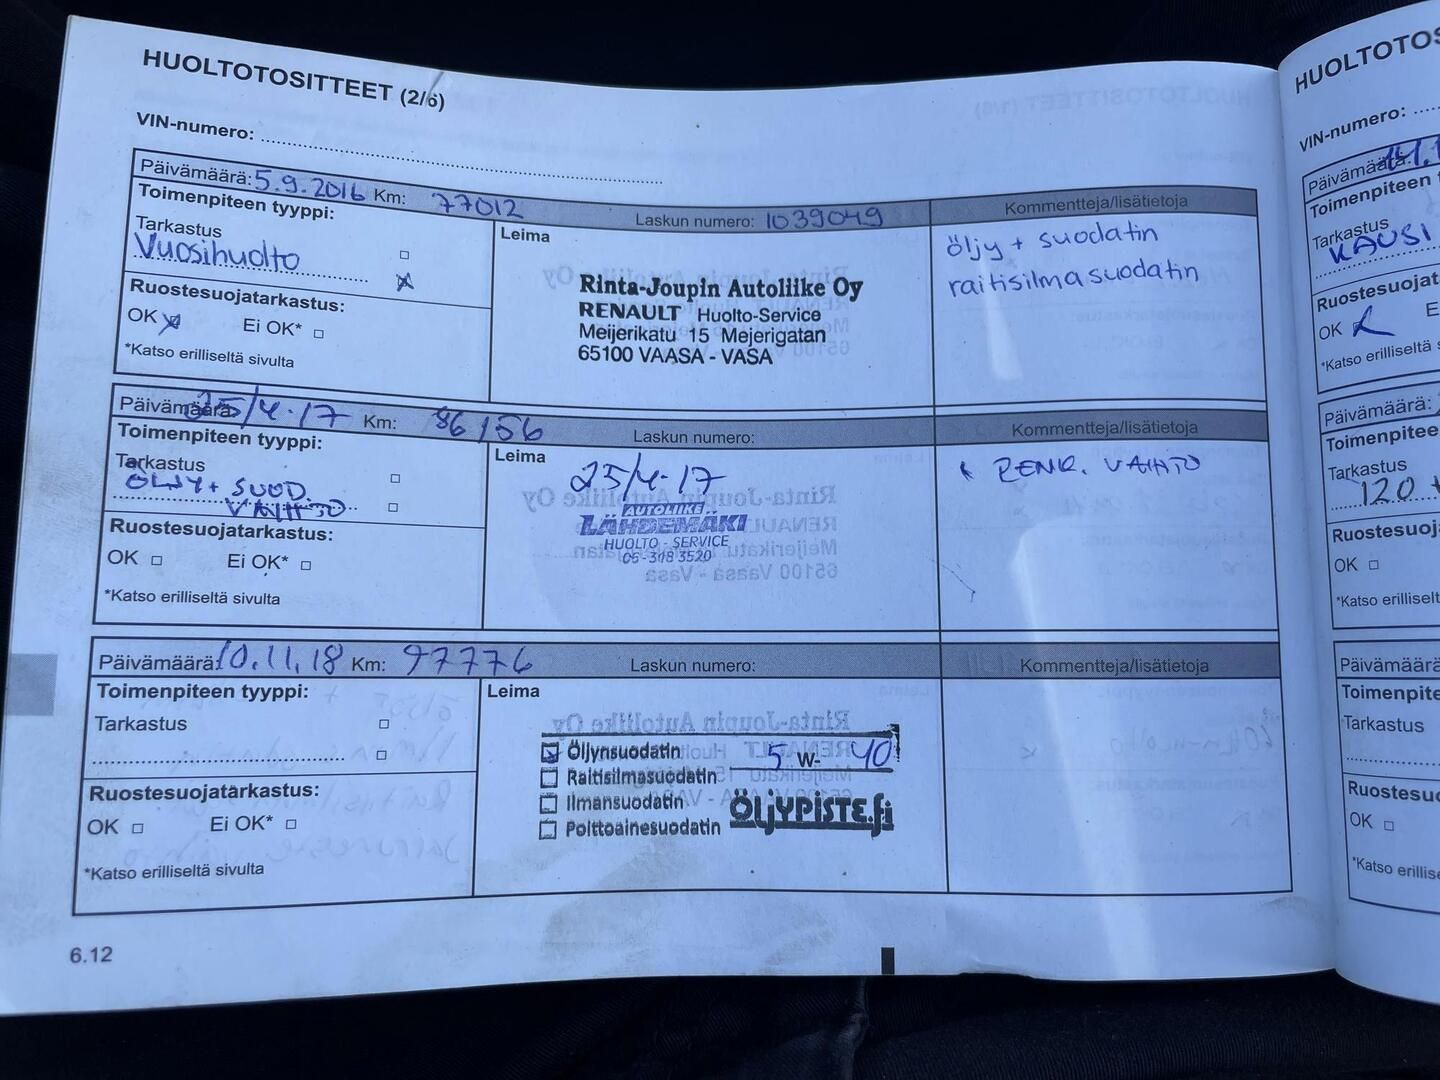 HUOLTOTOSITTEET (2/6)
VIN-numero:
Päivämäärä: 5.9.2016 Km: 77012 Laskun numero: 1039049 Kommentteja/lisätietoja
Toimenpiteen tyyppi:
Tarkastus
Vuosihuolto
Ruostesuojatarkastus:
OK Ei OK*
*Katso erilliseltä sivulta
Leima
Rinta-Joupin Autoliike Oy
RENAULT Huolto-Service
Meijerikatu 15 Mejerigatan
65100 VAASA - VASA
öljy + suodatin
raitisilmasuodatin
Päivämäärä: 25/4-17 Km: 86156 Laskun numero: Kommentteja/lisätietoja
Toimenpiteen tyyppi:
Tarkastus
ÖLJY + SUOD.
VAIHTO
Ruostesuojatarkastus:
OK Ei OK*
*Katso erilliseltä sivulta
Leima
25/4-17
AUTOLIIKE
LÄHDEMÄKI
HUOLTO - SERVICE
06 - 318 3520
RENK. VAIHTO
Päivämäärä: 10.11.18 Km: 97776 Laskun numero: Kommentteja/lisätietoja
Toimenpiteen tyyppi:
Tarkastus
Ruostesuojatarkastus:
OK Ei OK*
*Katso erilliseltä sivulta
Leima
Öljynsuodatin 5 W- 40
Raitisilmasuodatin
Ilmansuodatin
Polttoainesuodatin
ÖLJYPISTE.fi
6.12
HUOLTOTOS
VIN-numero:
Päivämäärä: 14.1
Toimenpiteen
Tarkastus
KAUSI
Ruostesuojat
OK E
*Katso erilliseltä s
Päivämäärä:
Toimenpitee
Tarkastus
120
Ruostesuoj
OK
*Katso erilliselt
Päivämäärä
Toimenpite
Tarkastus
Ruostesu
OK
*Katso erillise